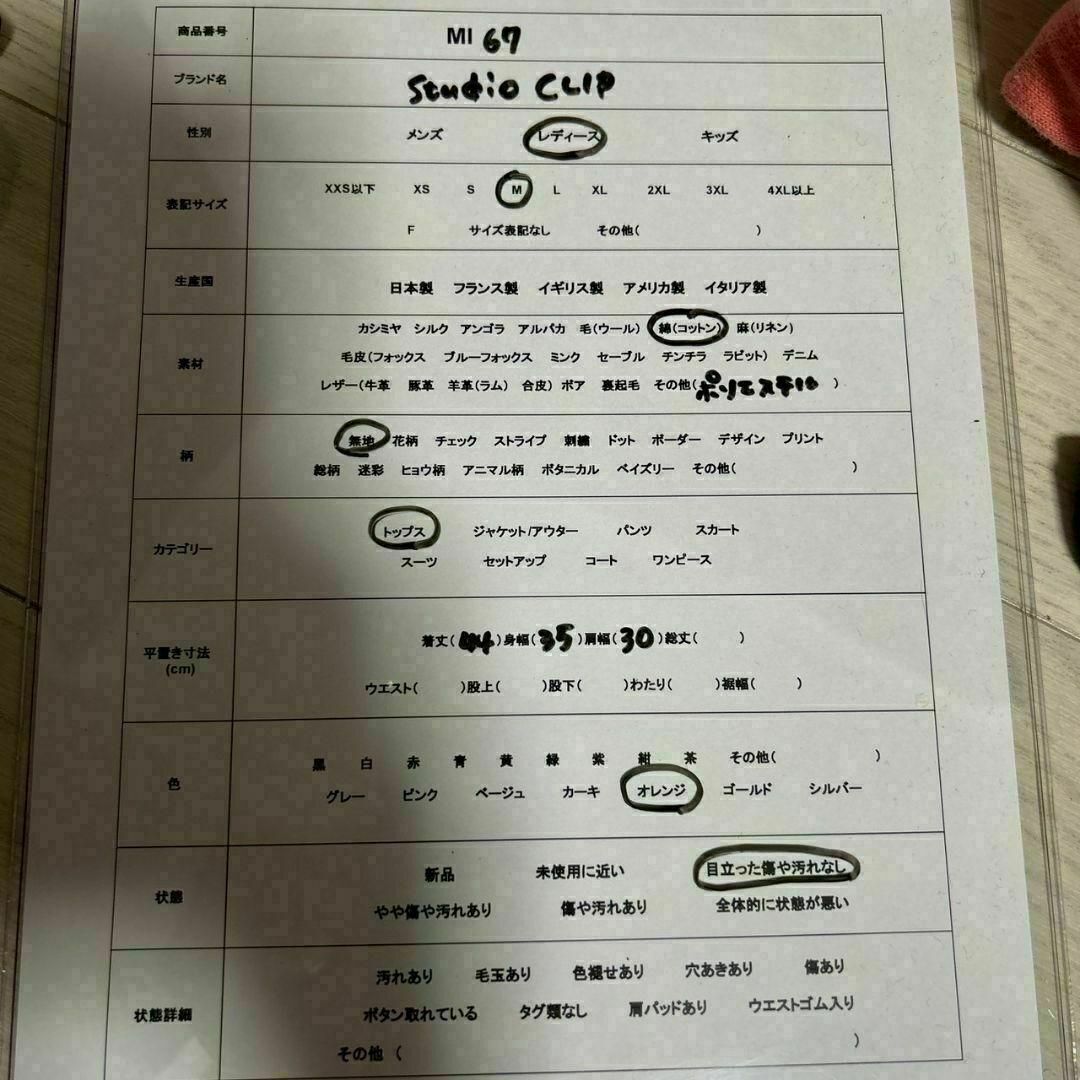 商品番号 MI 67
ブランド名 studio CLIP
性別 メンズ レディース キッズ
表記サイズ XXS以下 XS S M L XL 2XL 3XL 4XL以上
F サイズ表記なし その他( )
生産国 日本製 フランス製 イギリス製 アメリカ製 イタリア製
素材 カシミヤ シルク アンゴラ アルパカ 毛(ウール) 綿(コットン) 麻(リネン)
毛皮(フォックス ブルーフォックス ミンク セーブル チンチラ ラビット) デニム
レザー(牛革 豚革 羊革(ラム) 合皮) ボア 裏起毛 その他(ポリエステル )
柄 無地 花柄 チェック ストライプ 刺繍 ドット ボーダー デザイン プリント
総柄 迷彩 ヒョウ柄 アニマル柄 ボタニカル ペイズリー その他( )
カテゴリー トップス ジャケット/アウター パンツ スカート
スーツ セットアップ コート ワンピース
平置き寸法 着丈(44)身幅(35)肩幅(30)総丈( )
(cm) ウエスト( )股上( )股下( )わたり( )裾幅( )
色 黒 白 赤 青 黄 緑 紫 紺 茶 その他( )
グレー ピンク ベージュ カーキ オレンジ ゴールド シルバー
状態 新品 未使用に近い 目立った傷や汚れなし
やや傷や汚れあり 傷や汚れあり 全体的に状態が悪い
状態詳細 汚れあり 毛玉あり 色褪せあり 穴あきあり 傷あり
ボタン取れている タグ類なし 肩パッドあり ウエストゴム入り
その他 ( )